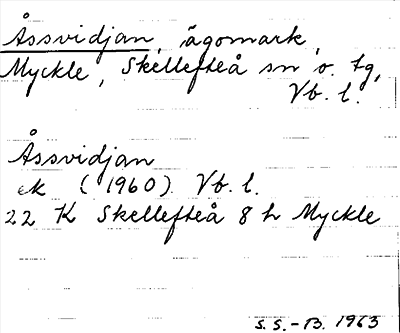 Åssvidjan, ägomark,
Myckle, Skellefteå sn o. tg,
Vb. l.
Åssvidjan
ek (1960) Vb. l.
22 K Skellefteå 8 h Myckle
S.S.-B. 1963